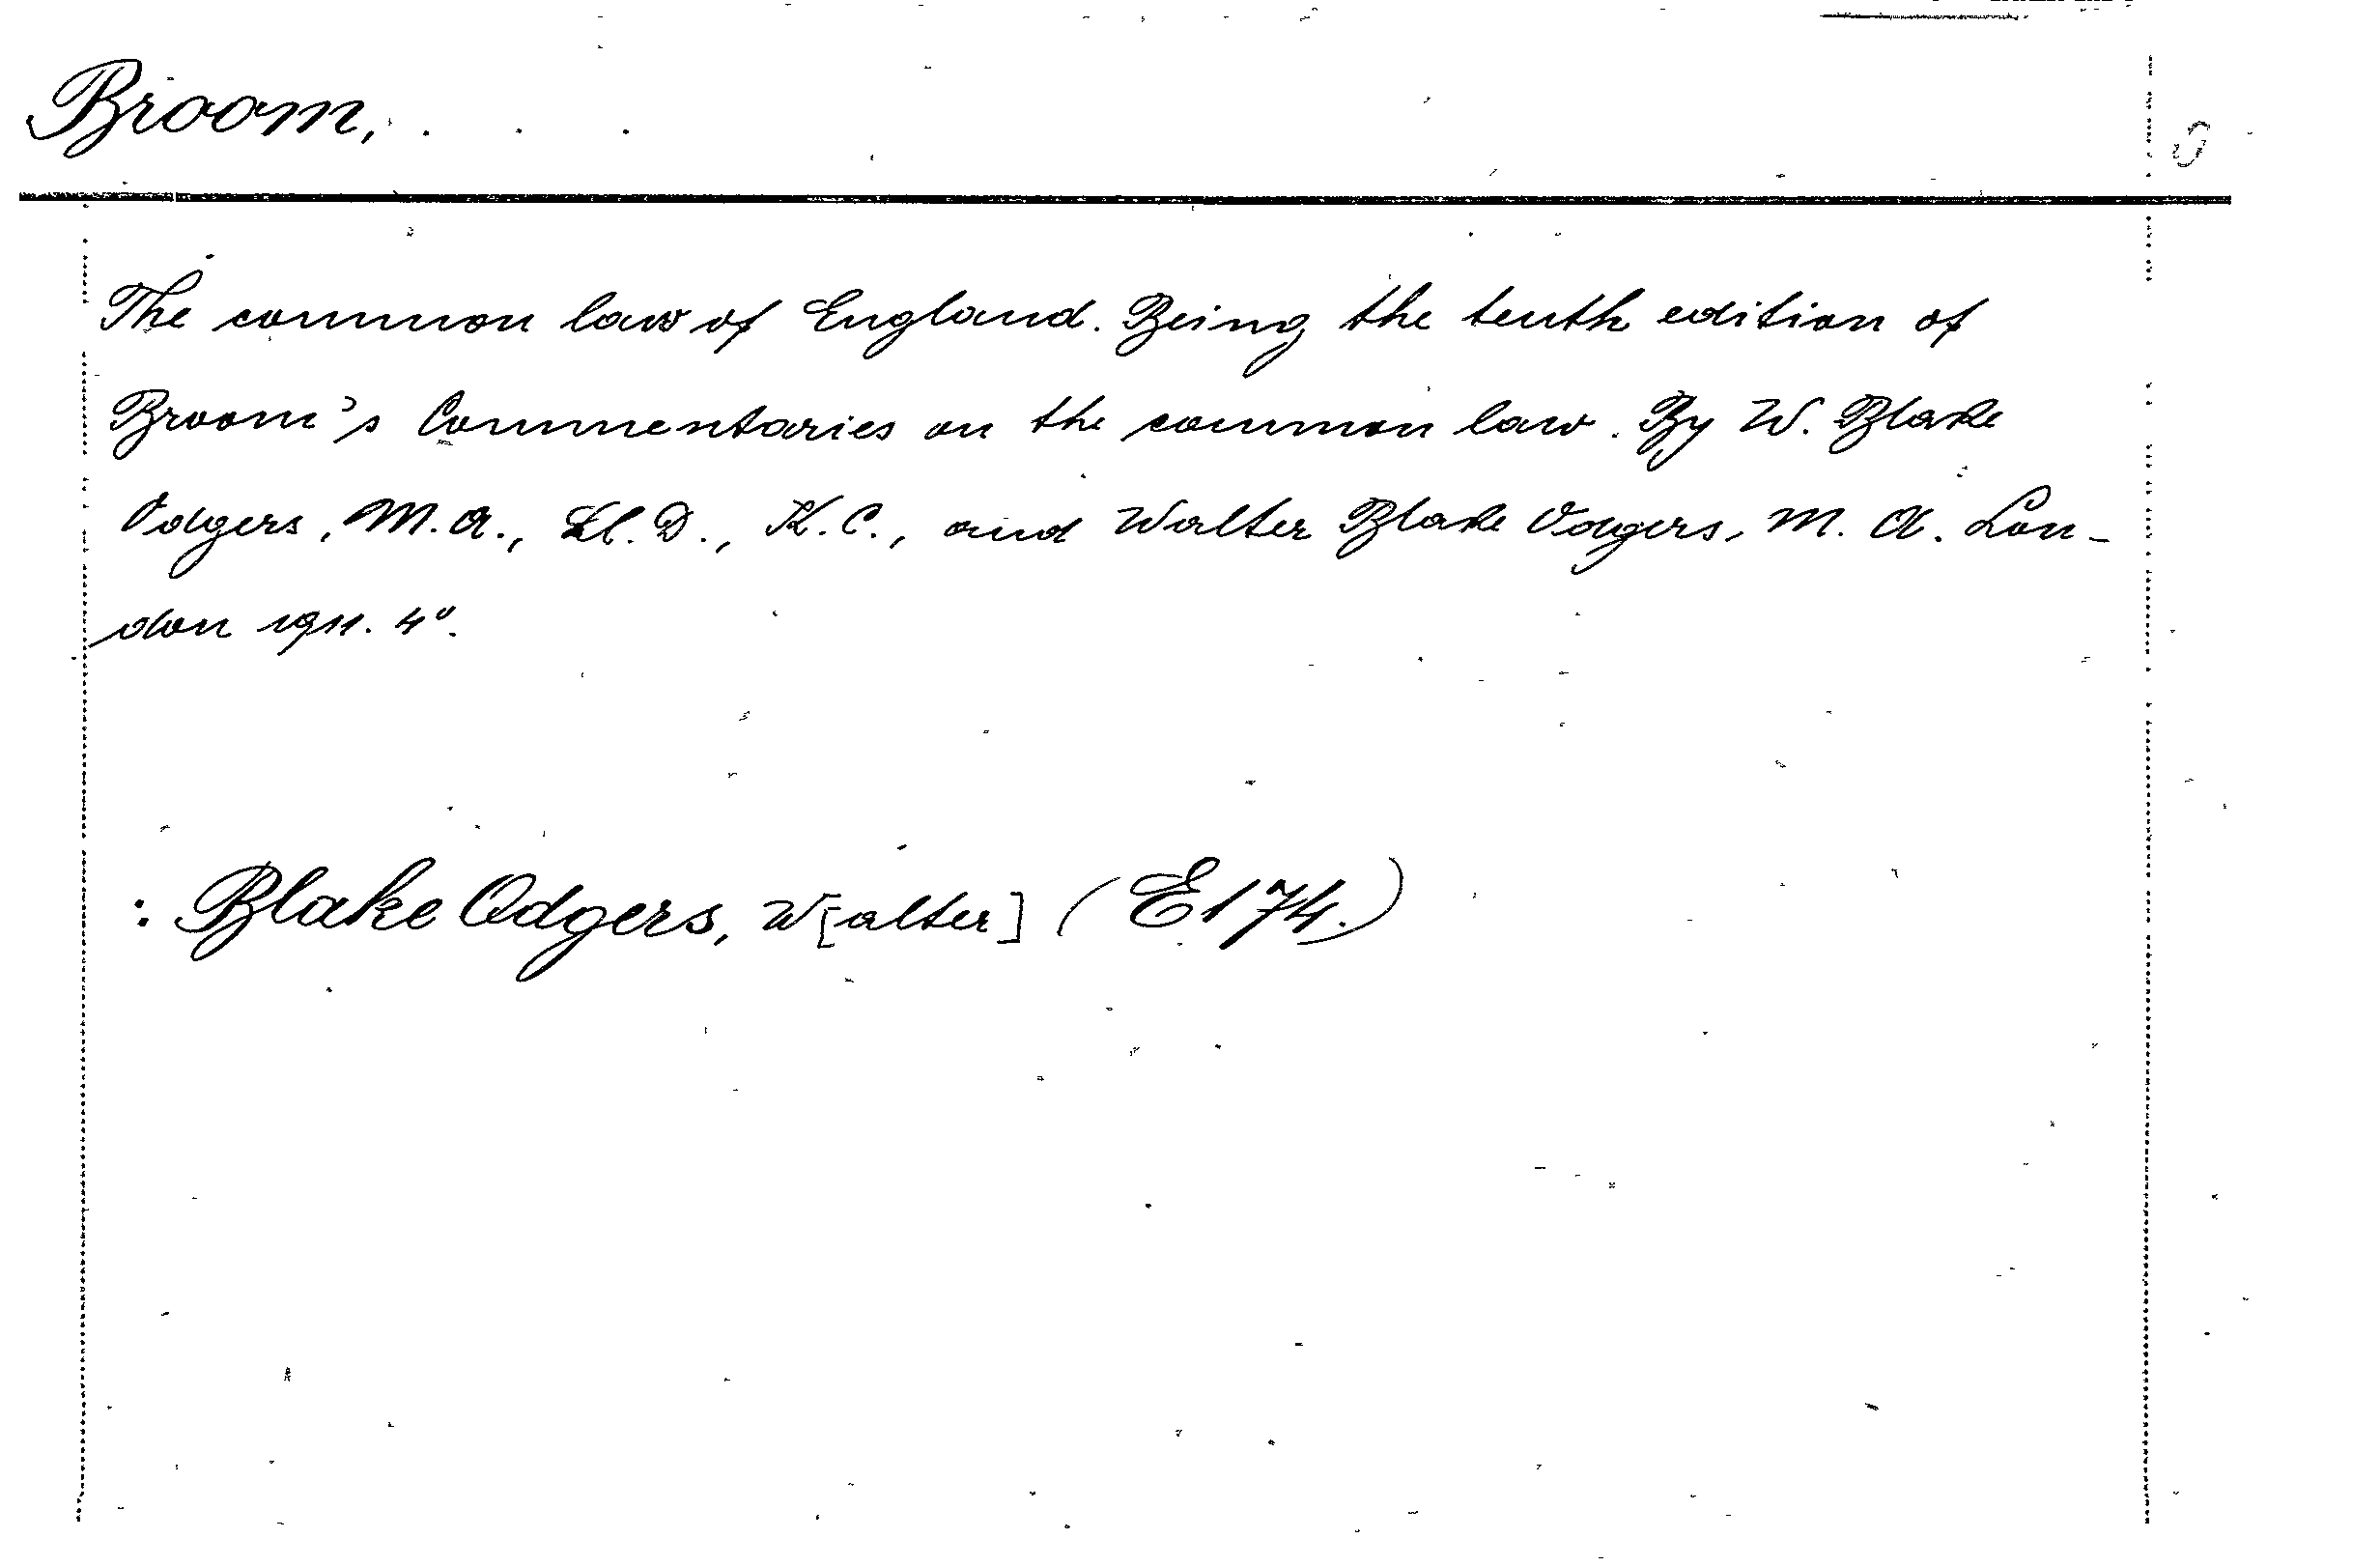 Broom, . . .
The common law of England. Being the tenth edition of
Broom's Commentaries on the common law. By W. Blake
Odgers, M.A., LL.D., K.C., and Walter Blake Odgers, M.A. Lon-
don 1911. 4°.
: Blake Odgers, W[alter] (E174.)